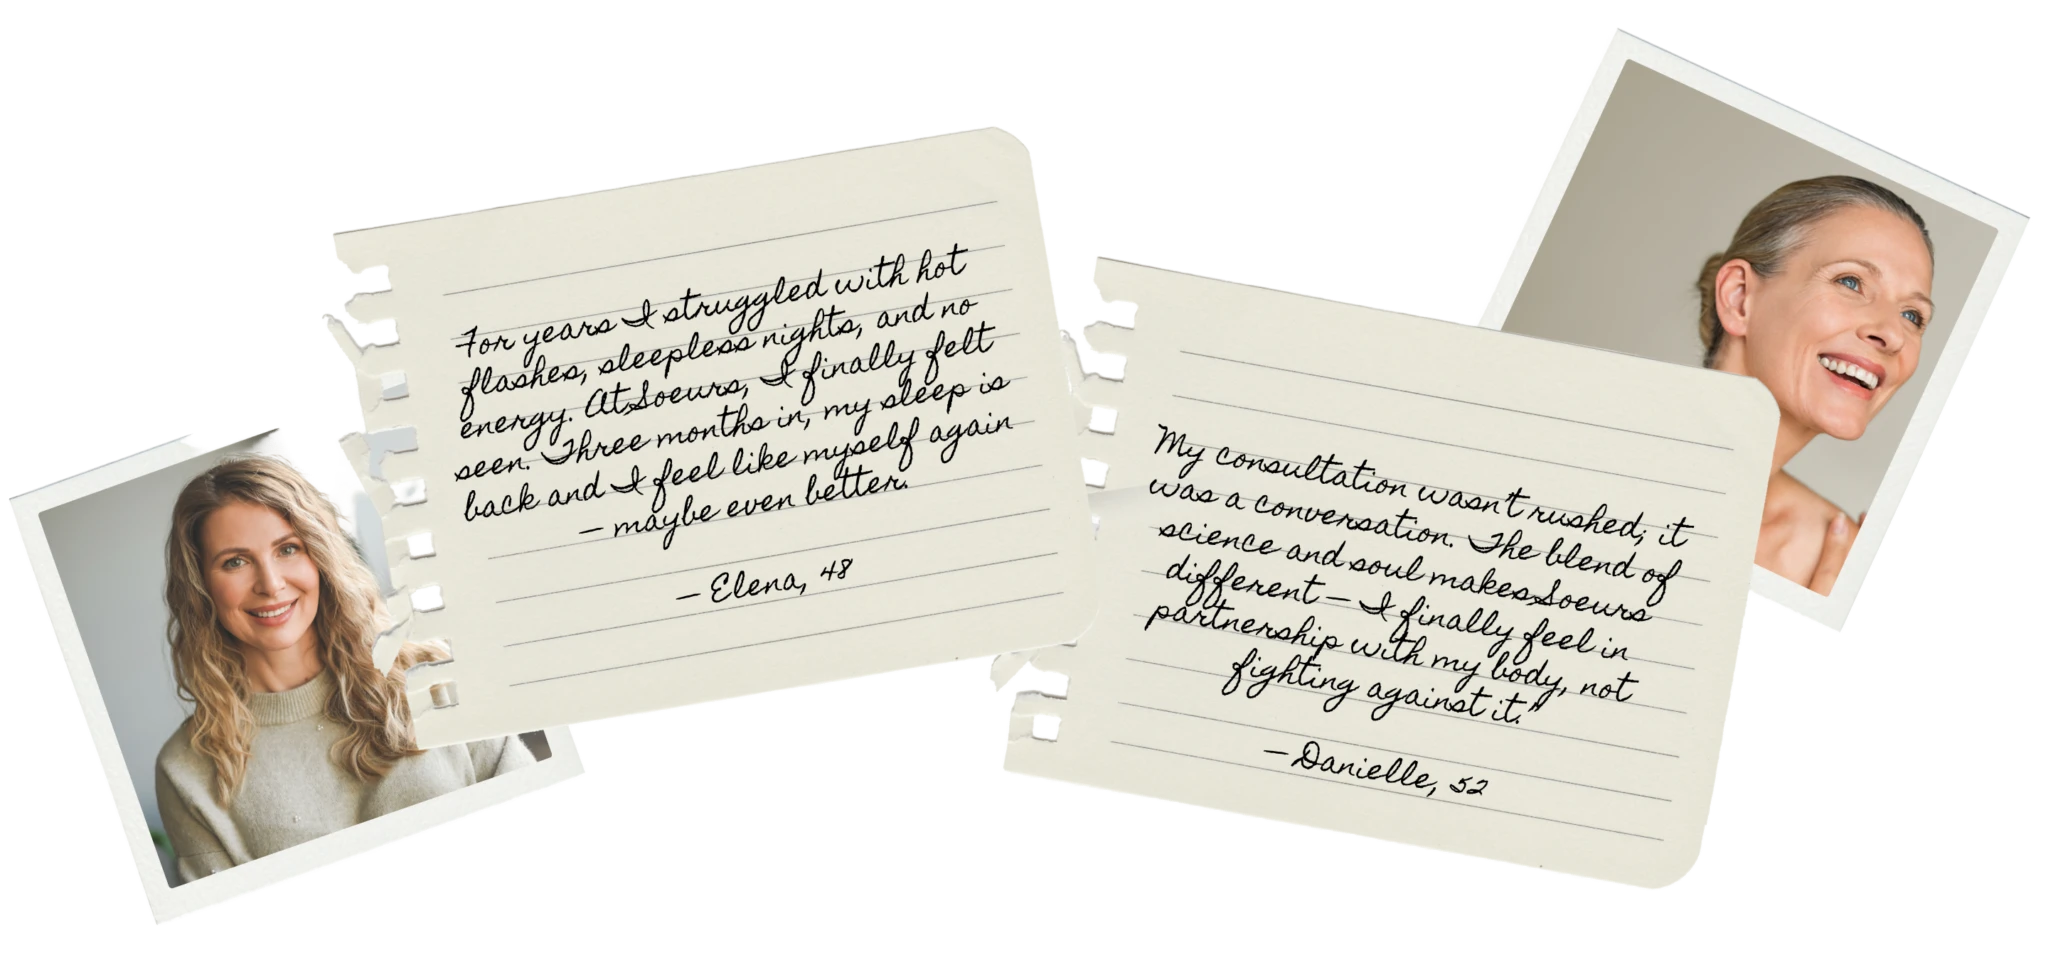 For years I struggled with hot
flashes, sleepless nights, and no
energy. At Soeurs, I finally felt
seen. Three months in, my sleep is
back and I feel like myself again
— maybe even better.
— Elena, 48
My consultation wasn't rushed; it
was a conversation. The blend of
science and soul makes Soeurs
different — I finally feel in
partnership with my body, not
fighting against it."
— Danielle, 52